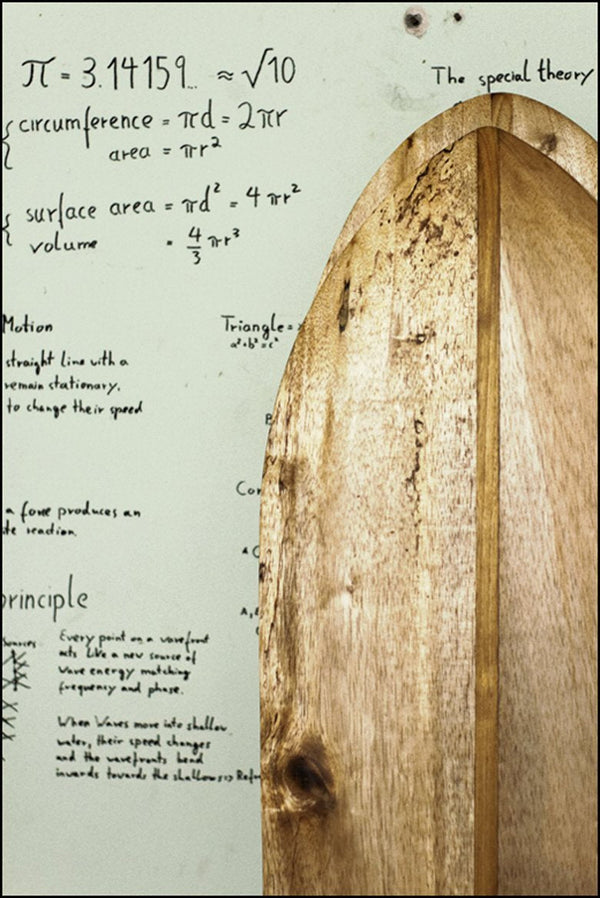 π = 3.14159... ≈ √10
The special theory
circumference = πd = 2πr
area = πr²
surface area = πd² = 4πr²
volume = 4/3 πr³
Motion
straight line with a
remain stationary.
to change their speed
Triangle =
a²+b²=c²
a force produces an
te reaction.
principle
Sources
Every point on a wavefront
acts like a new source of
wave energy matching
frequency and phase.
When Waves move into shallow
water, their speed changes
and the wavefronts bend
inwards towards the shallows => Refr